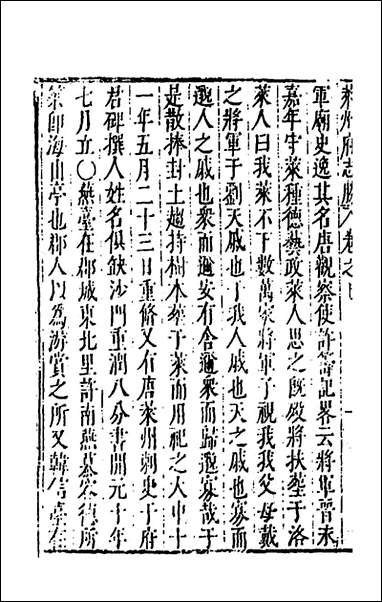 萊州府志〇卷之七
軍廟史逸其名唐觀察使許籌記畧云將軍晉末
嘉年牢萊種德藝政萊人思之旣歿將扶塟于洛
萊人曰我萊不下數萬家將軍子視我我父母戴
之將軍于劉天戚也于我人戚也天之戚也寡而
邇人之戚也衆而邇安有舍邇衆而歸邇寡哉于
是散捧封土趨持樹木塟于萊而用祀之大中十
一年五月二十三日重修又有唐萊州刺史于府
君碑撰人姓名俱缺沙門重潤八分書開元十年
七月立〇燕臺在郡城東北里許南燕慕容德所
築即海山亭也郡人以為游賞之所又韓信亭在